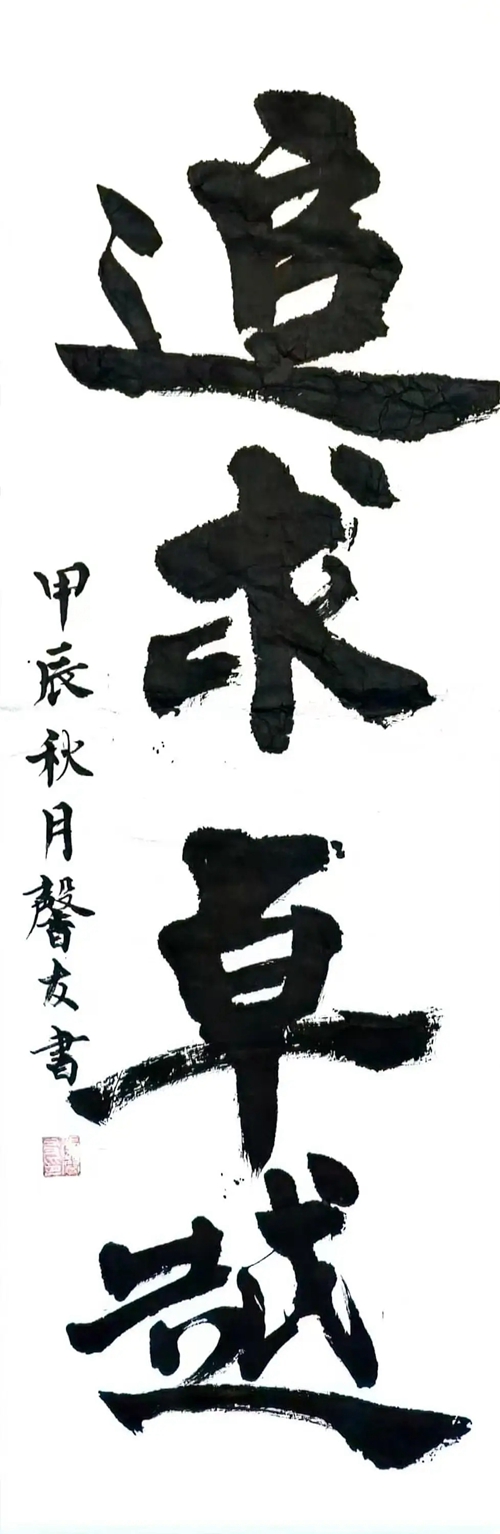 追求卓越
甲辰秋月馨友書